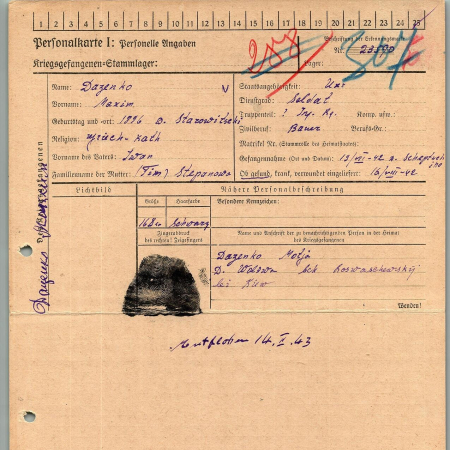 1 2 3 4 5 6 7 8 9 10 11 12 13 14 15 16 17 18 19 20 21 22 23 24 25
Personalkarte I: Personelle Angaben
Kriegsgefangenen-Stammlager:
Beschriftung der Erkennungsmarke
Nr. 23590
Lager:
Name: Dazenko
Vorname: Maxim
Geburtstag und -ort: 1896 D. Starowitschi
Religion: griech-kath
Vorname des Vaters: Iwan
Familienname der Mutter: (Tim) Stepanowa
Staatsangehörigkeit: Ukr
Dienstgrad: Soldat
Truppenteil: ? Inf. Rg. Komp. usw.:
Zivilberuf: Bauer Berufs-Gr.:
Matrikel Nr. (Stammrolle des Heimatstaates):
Gefangennahme (Ort und Datum): 13/VII-42
Ob gesund, krank, verwundet eingeliefert: 16/VII-42
Des Kriegsgefangenen
Lichtbild
Nähere Personalbeschreibung
Größe Haarfarbe Besondere Kennzeichen:
1,68 Schwarz
Fingerabdruck
des rechten! Zeigefingers
Name und Anschrift der zu benachrichtigenden Person in der Heimat
des Kriegsgefangenen
Dazenko
bei Kiew
Wenden!
Entflohen 14.X.43